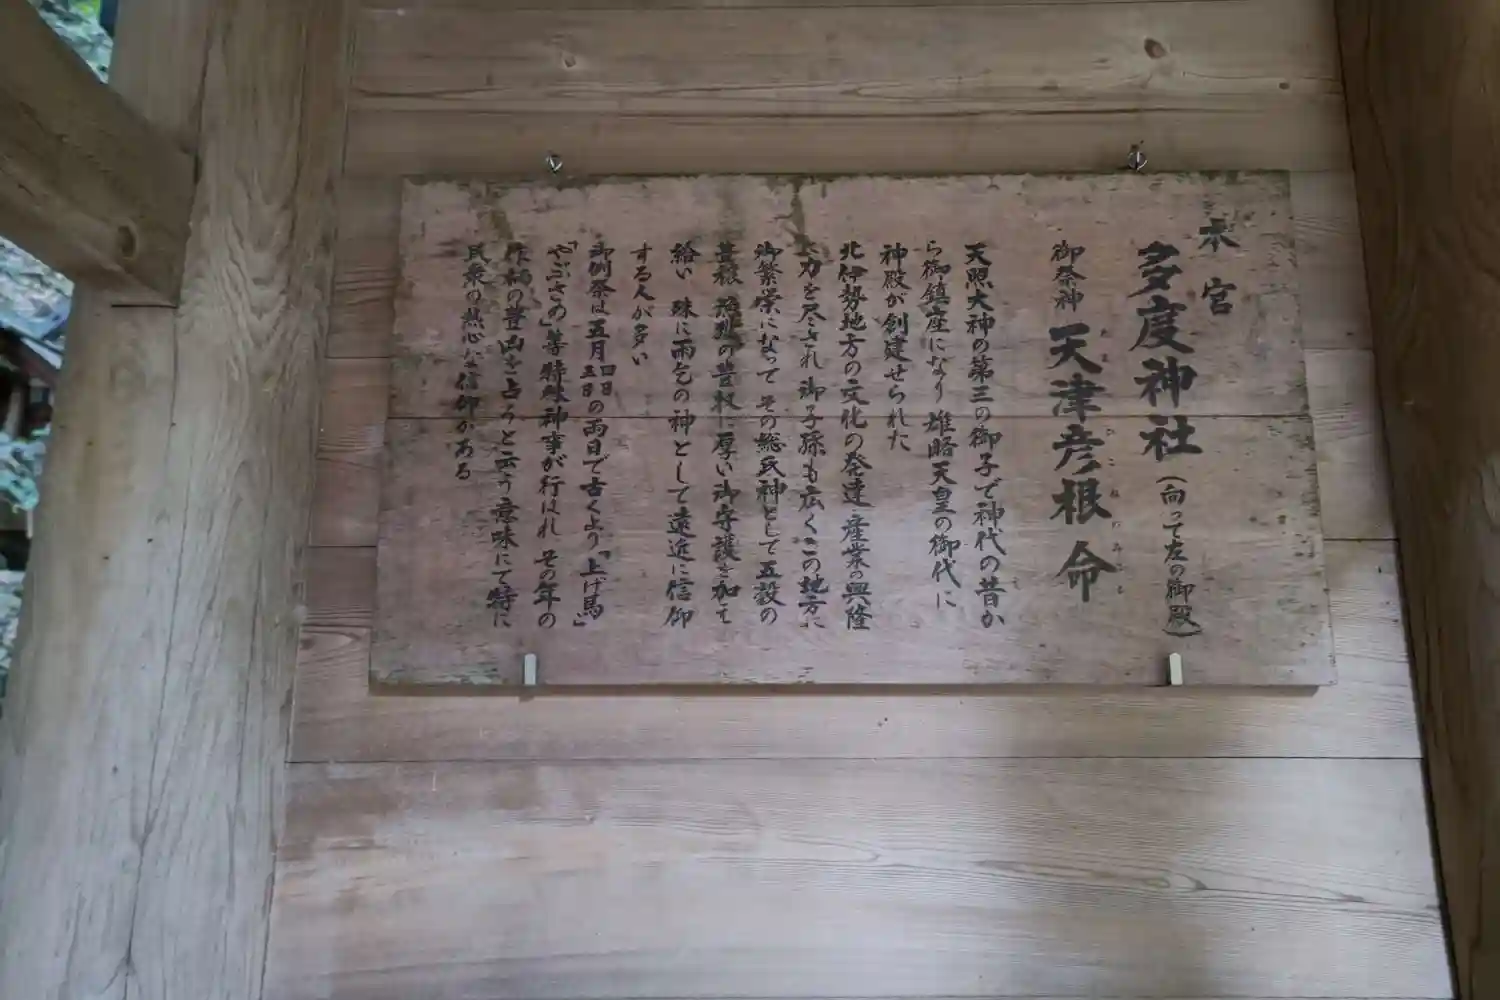 本宮
多度神社(向って左の御殿)
御祭神 天津彦根命
あまつひこねのみこと
天照大神の第三の御子で神代の昔か
ら御鎮座になり 雄略天皇の御代に
神殿が創建せられた
北伊勢地方の文化の発達 産業の興隆
に力を尽され 御子孫も広くこの地方に
御繁栄になって その総氏神として五穀の
豊穣 の豊収に厚い御守護を加て
給い 殊に雨乞の神として遠近に信仰
する人が多い
御例祭は五月四日五日の両日で古くより「上げ馬」
「やぶさめ」等特殊神事が行はれ その年の
作柄の豊凶を占うと云う意味にて特に
民衆の熱心な信仰がある